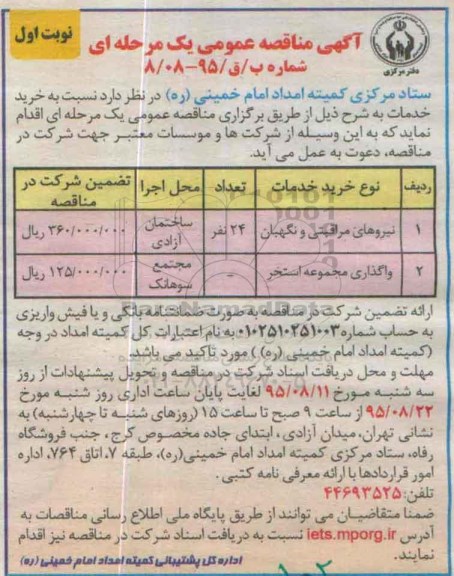 نوبت اول
آگهی مناقصه عمومی یک مرحله ای
شماره ب/ق/۹۵-۸/۰۸
دفتر مرکزی
ستاد مرکزی کمیته امداد امام خمینی (ره) در نظر دارد نسبت به خرید
خدمات به شرح ذیل از طریق برگزاری مناقصه عمومی یک مرحله ای اقدام
نماید که به این وسیله از شرکت ها و موسسات معتبر جهت شرکت در
مناقصه، دعوت به عمل می آید.
ردیف نوع خرید خدمات تعداد محل اجرا تضمین شرکت در مناقصه
۱ نیروهای مراقبتی و نگهبان ۲۴ نفر ساختمان آزادی ۳۶۰/۰۰۰/۰۰۰ ریال
۲ واگذاری مجموعه استخر - مجتمع سوهانک ۱۲۵/۰۰۰/۰۰۰ ریال
ارائه تضمین شرکت در مناقصه به صورت ضمانتنامه بانکی و یا فیش واریزی
به حساب شماره ۰۱۰۲۵۱۰۲۵۱۰۰۳ به نام اعتبارات کل کمیته امداد در وجه
(کمیته امداد امام خمینی (ره)) مورد تاکید می باشد.
مهلت و محل دریافت اسناد شرکت در مناقصه و تحویل پیشنهادات از روز
سه شنبه مورخ ۹۵/۰۸/۱۱ لغایت پایان ساعت اداری روز شنبه مورخ
۹۵/۰۸/۲۲ از ساعت ۹ صبح تا ساعت ۱۵ (روزهای شنبه تا چهارشنبه) به
نشانی تهران، میدان آزادی، ابتدای جاده مخصوص کرج، جنب فروشگاه
رفاه، ستاد مرکزی کمیته امداد امام خمینی(ره)، طبقه ۷، اتاق ۷۶۴، اداره
امور قراردادها با ارائه معرفی نامه کتبی.
تلفن: ۴۴۶۹۳۵۲۵
ضمنا متقاضیان می توانند از طریق پایگاه ملی اطلاع رسانی مناقصات به
آدرس iets.mporg.ir نسبت به دریافت اسناد شرکت در مناقصه نیز اقدام
نمایند.
اداره کل پشتیبانی کمیته امداد امام خمینی (ره)